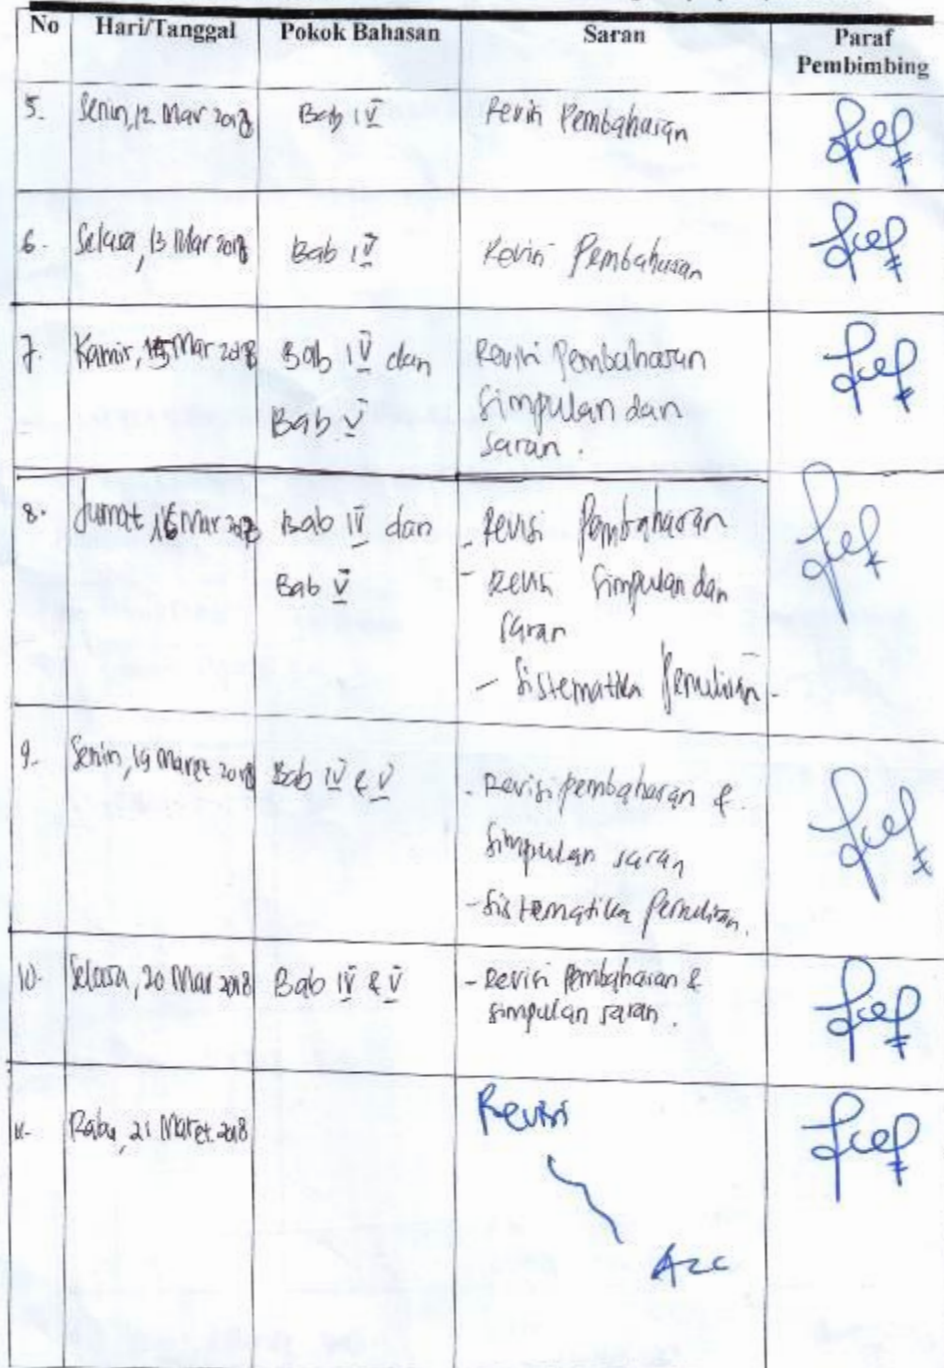 No Hari/Tanggal Pokok Bahasan Saran Paraf Pembimbing
5. Senin, 12 Mar 2018 Bab IV Revisi Pembahasan
6. Selasa, 13 Mar 2018 Bab IV Revisi Pembahasan
7. Kamis, 15 Mar 2018 Bab IV dan Revisi Pembahasan
Bab V Simpulan dan
Saran.
8. Jumat, 16 Mar 2018 Bab IV dan - Revisi Pembahasan
Bab V - Revisi Simpulan dan
Saran
- Sistematika Penulisan -
9. Senin, 19 Maret 2018 Bab IV & V - Revisi pembahasan &
Simpulan saran
- Sistematika Penulisan.
10. Selasa, 20 Mar 2018 Bab IV & V - Revisi Pembahasan &
Simpulan saran.
11. Rabu, 21 Maret 2018 Revisi
Acc